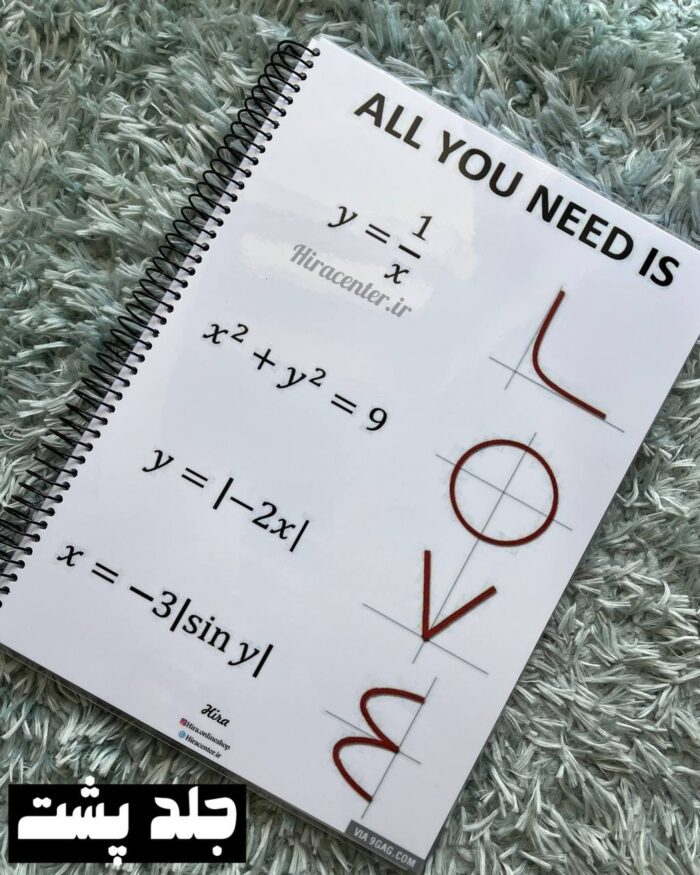 ALL YOU NEED IS
y = 1/x
Hiracenter.ir
x² + y² = 9
y = |−2x|
x = −3|sin y|
Hira
Hira.onlineshop
Hiracenter.ir
VIA 9GAG.COM
جلد پشت